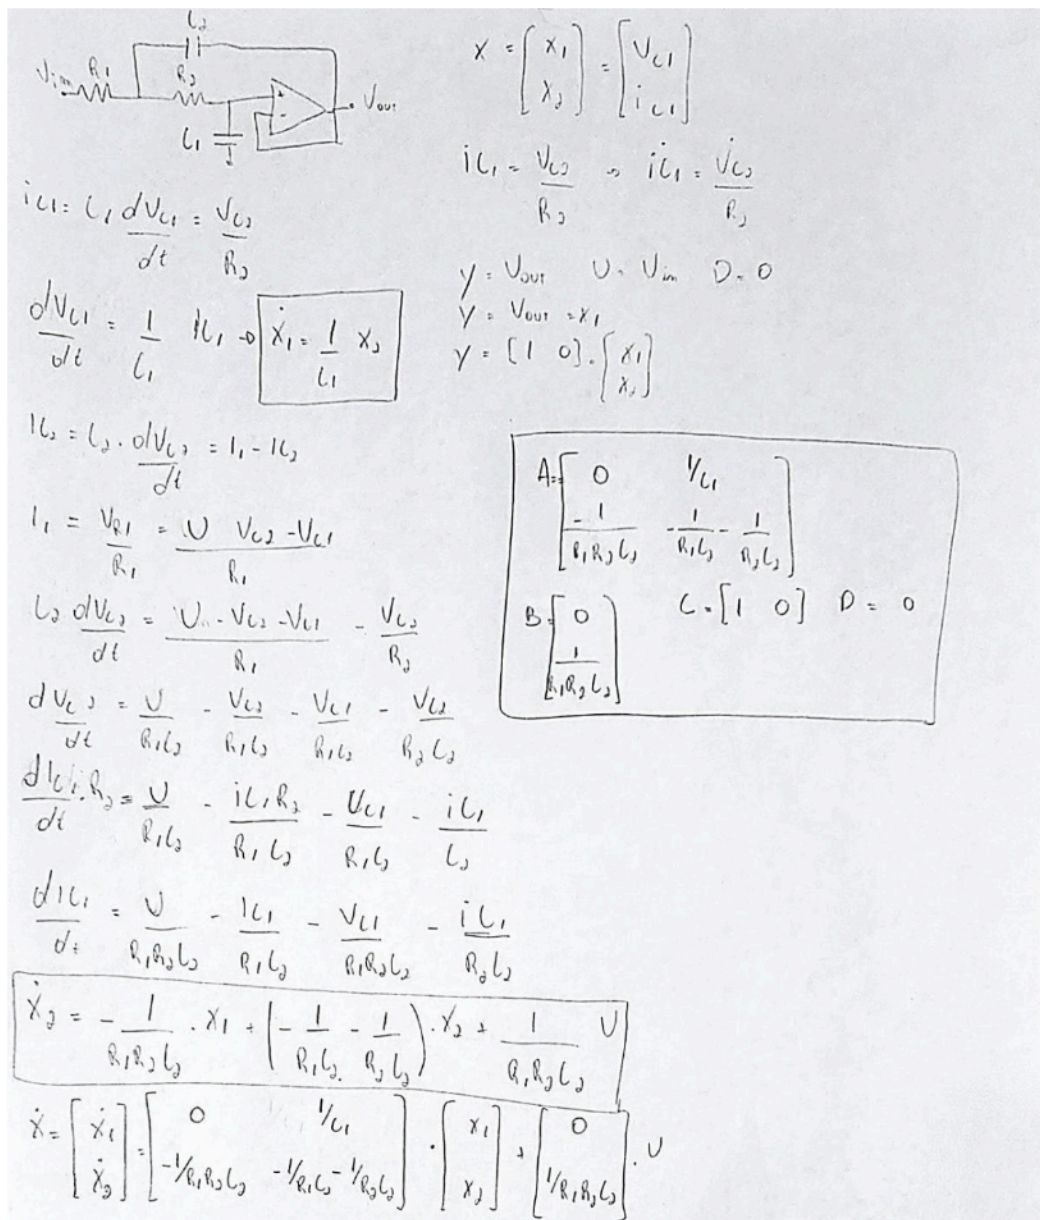 C₂
Vin R₁ R₂ + - Vout
C₁
iC₁ = C₁ dVC₁/dt = VC₂/R₂
dVC₁/dt = 1/C₁ iC₁ → ẋ₁ = 1/C₁ x₂
IC₂ = C₂ . dVC₂/dt = I₁ - IC₂
I₁ = VR₁/R₁ = U VC₂ - VC₁/R₁
C₂ dVC₂/dt = U - VC₂ - VC₁/R₁ - VC₂/R₂
dVC₂/dt = U/R₁C₂ - VC₂/R₁C₂ - VC₁/R₁C₂ - VC₂/R₂C₂
dIC₁/dt . R₂ = U/R₁C₂ - iC₁R₂/R₁C₂ - VC₁/R₁C₂ - iC₁/C₂
dIC₁/dt = U/R₁R₂C₂ - IC₁/R₁C₂ - VC₁/R₁R₂C₂ - iC₁/R₂C₂
ẋ₂ = - 1/R₁R₂C₂ . x₁ + (- 1/R₁C₂ - 1/R₂C₂) . x₂ + 1/R₁R₂C₂ U
ẋ = [ẋ₁ ; ẋ₂] = [0 1/C₁ ; -1/R₁R₂C₂ -1/R₁C₂ - 1/R₂C₂] . [x₁ ; x₂] + [0 ; 1/R₁R₂C₂] . U
X = [x₁ ; x₂] = [VC₁ ; iC₁]
iC₁ = VC₂/R₂ → i̇C₁ = V̇C₂/R₂
y = Vout U = Vin D = 0
y = Vout = x₁
y = [1 0] . [x₁ ; x₂]
A = [0 1/C₁ ; -1/R₁R₂C₂ -1/R₁C₂ - 1/R₂C₂]
B = [0 ; 1/R₁R₂C₂] C = [1 0] D = 0